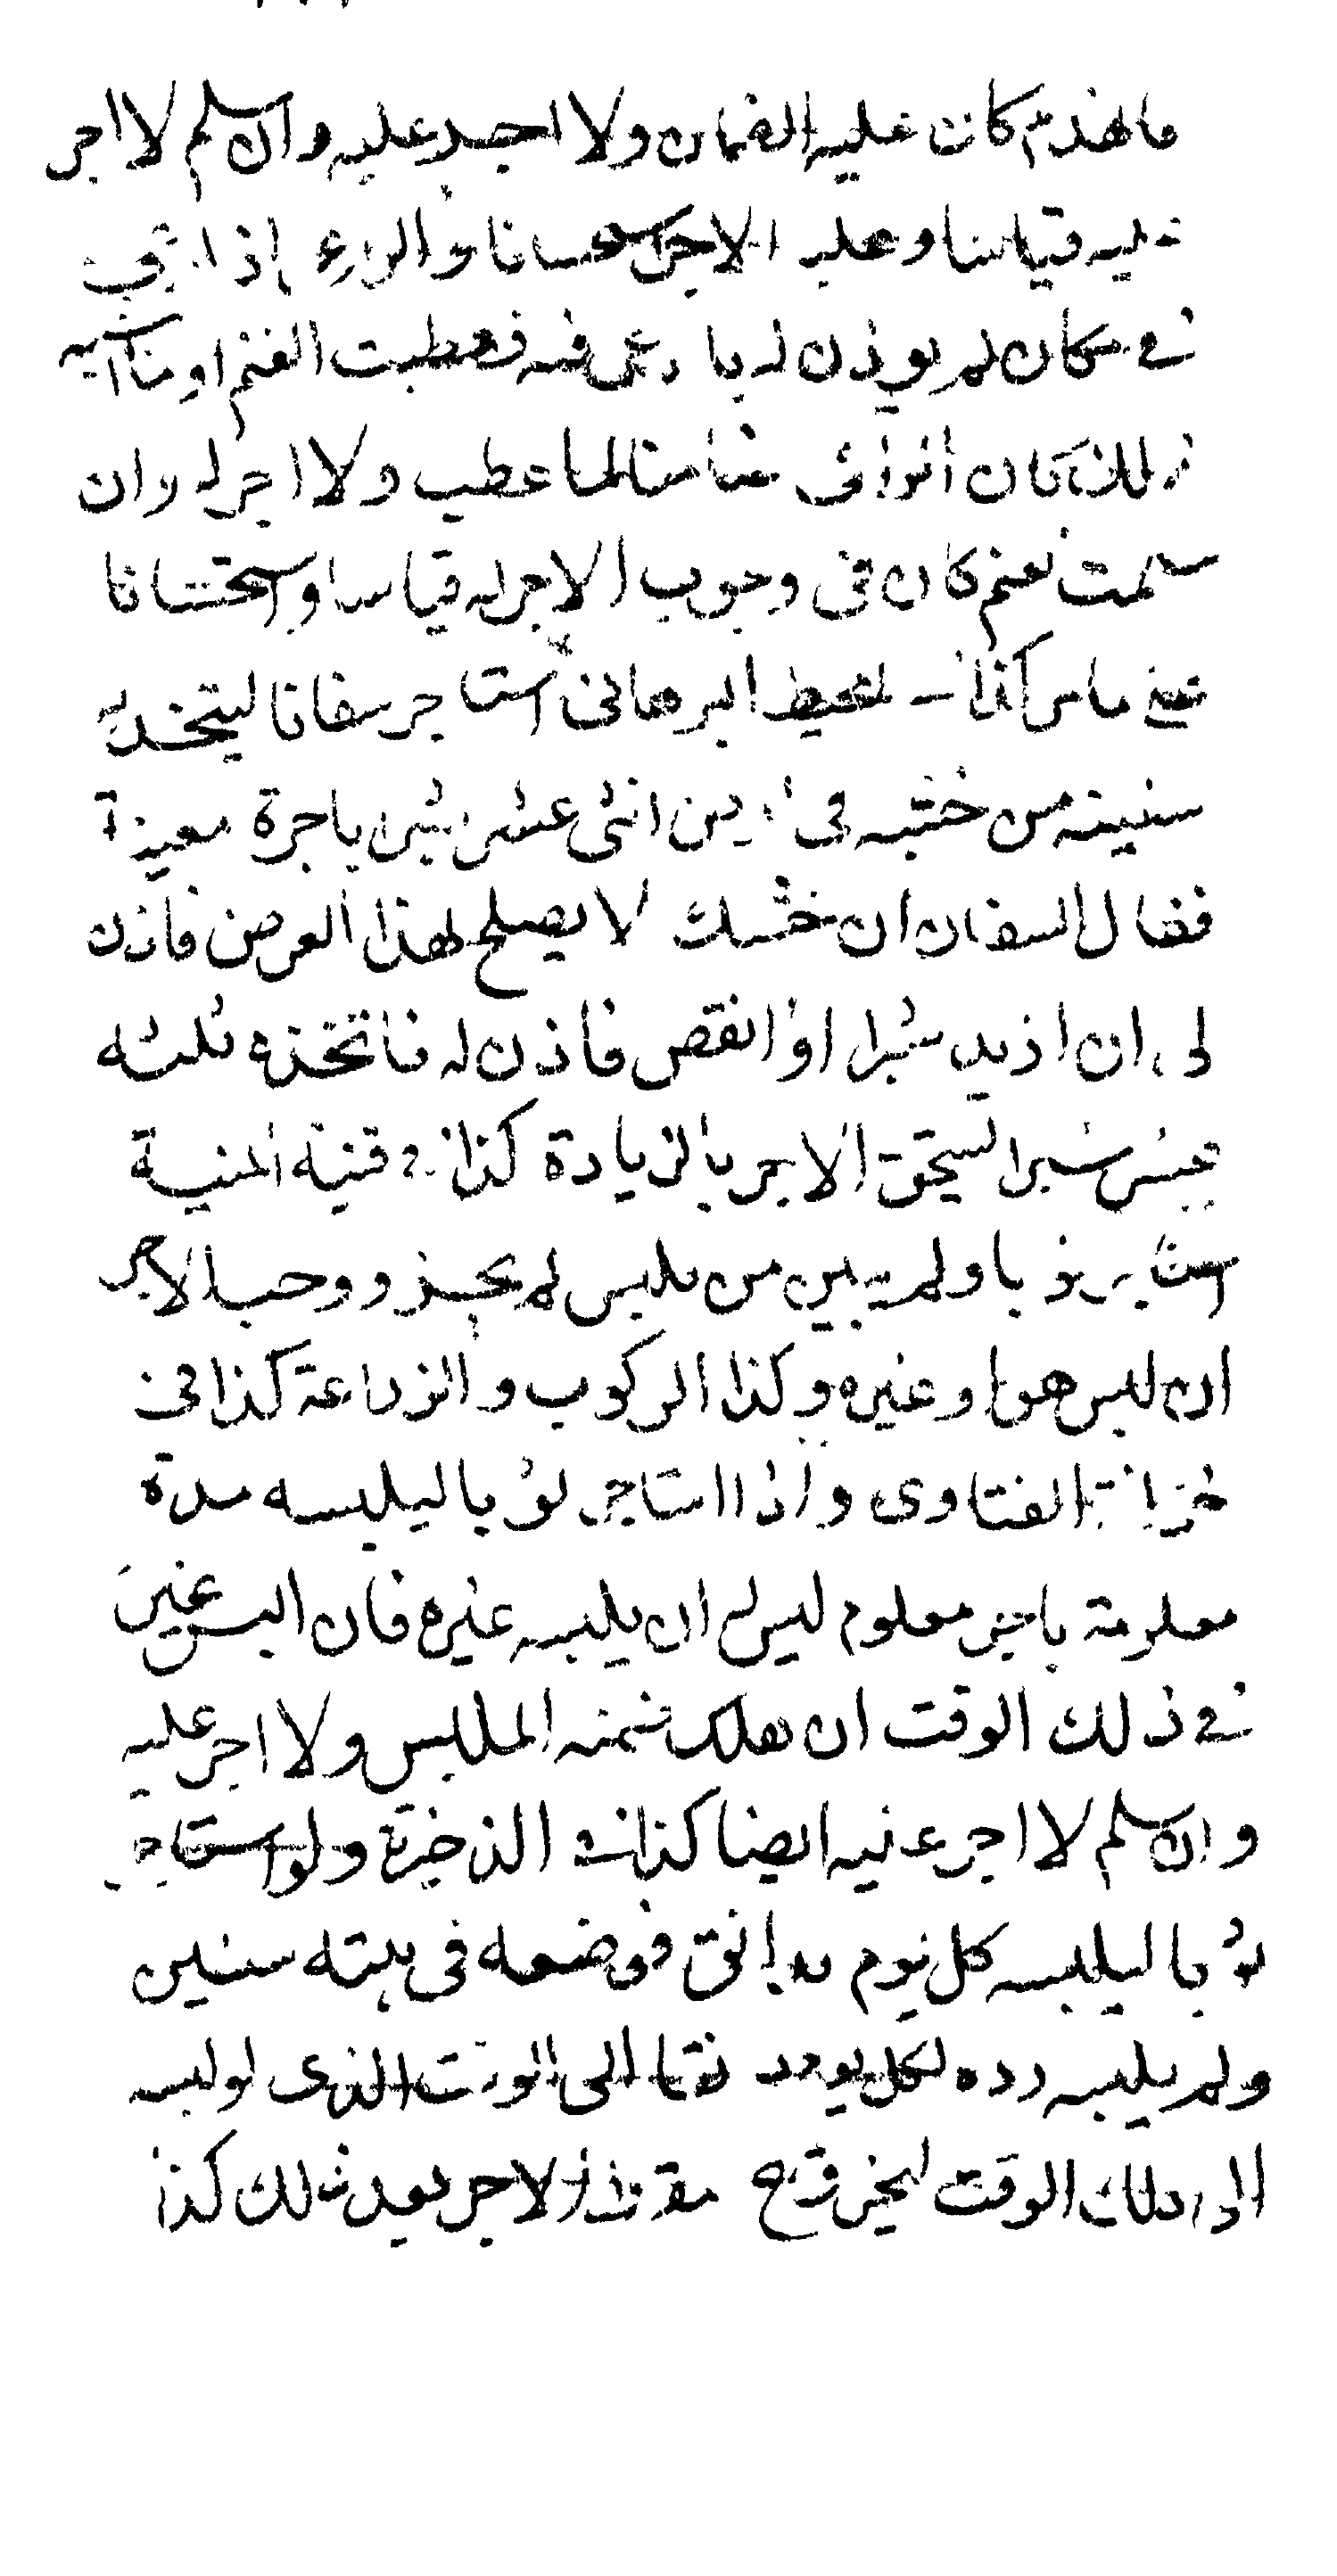 ما هذم كان عليه الضمان ولا اجر عليه وان سلم لا اجر
عليه قياسا وعليه الاجر استحسانا والراعي إذا
في مكان لم يوذن له بالرعي فيه فعطبت الغنم او
ذلك كان الراعي ضامنا لما عطب ولا اجر له وان
سلمت الغنم كان في وجوب الاجر له قياسا واستحسانا
على ما مر كذا في المحيط البرهاني استاجر سفانا ليتخذ له
سفينة من خشبه في اثني عشر شبرا باجرة معينة
فقال السفان ان خشبك لا يصلح لهذا العرض فاذن
لي ان ازيد شبرا او انقص فاذن له فاتخذه ثلثه
عشر شبرا لا يستحق الاجر بالزيادة كذا في قنية المنية
استاجر ثوبا ولم يبين من يلبس لم يجز ووجب الاجر
ان لبس هو او غيره وكذا الركوب والزراعة كذا في
خزانة الفتاوى واذا استاجر ثوبا ليلبسه مدة
معلومة باجر معلوم ليس له ان يلبسه غيره فان البس غيره
في ذلك الوقت ان هلك ضمنه الملبس ولا اجر عليه
وان سلم لا اجر عليه ايضا كذا في الذخيرة ولو استاجر
ثوبا ليلبسه كل يوم بدانق فوضعه في بيته سنين
ولم يلبسه رده لكل يوم دانقا الى الوقت الذي لو لبسه
الى ذلك الوقت ليخرق مقدار الاجر بعد ذلك كذا